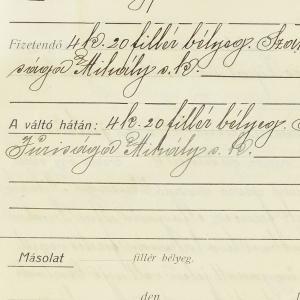 Fizetendő 4 k. 20 fillér bélyeg.
Mihály s. k.
A váltó hátán: 4 k. 20 fillér bélyeg.
Mihály s. k.
Másolat fillér bélyeg.
den